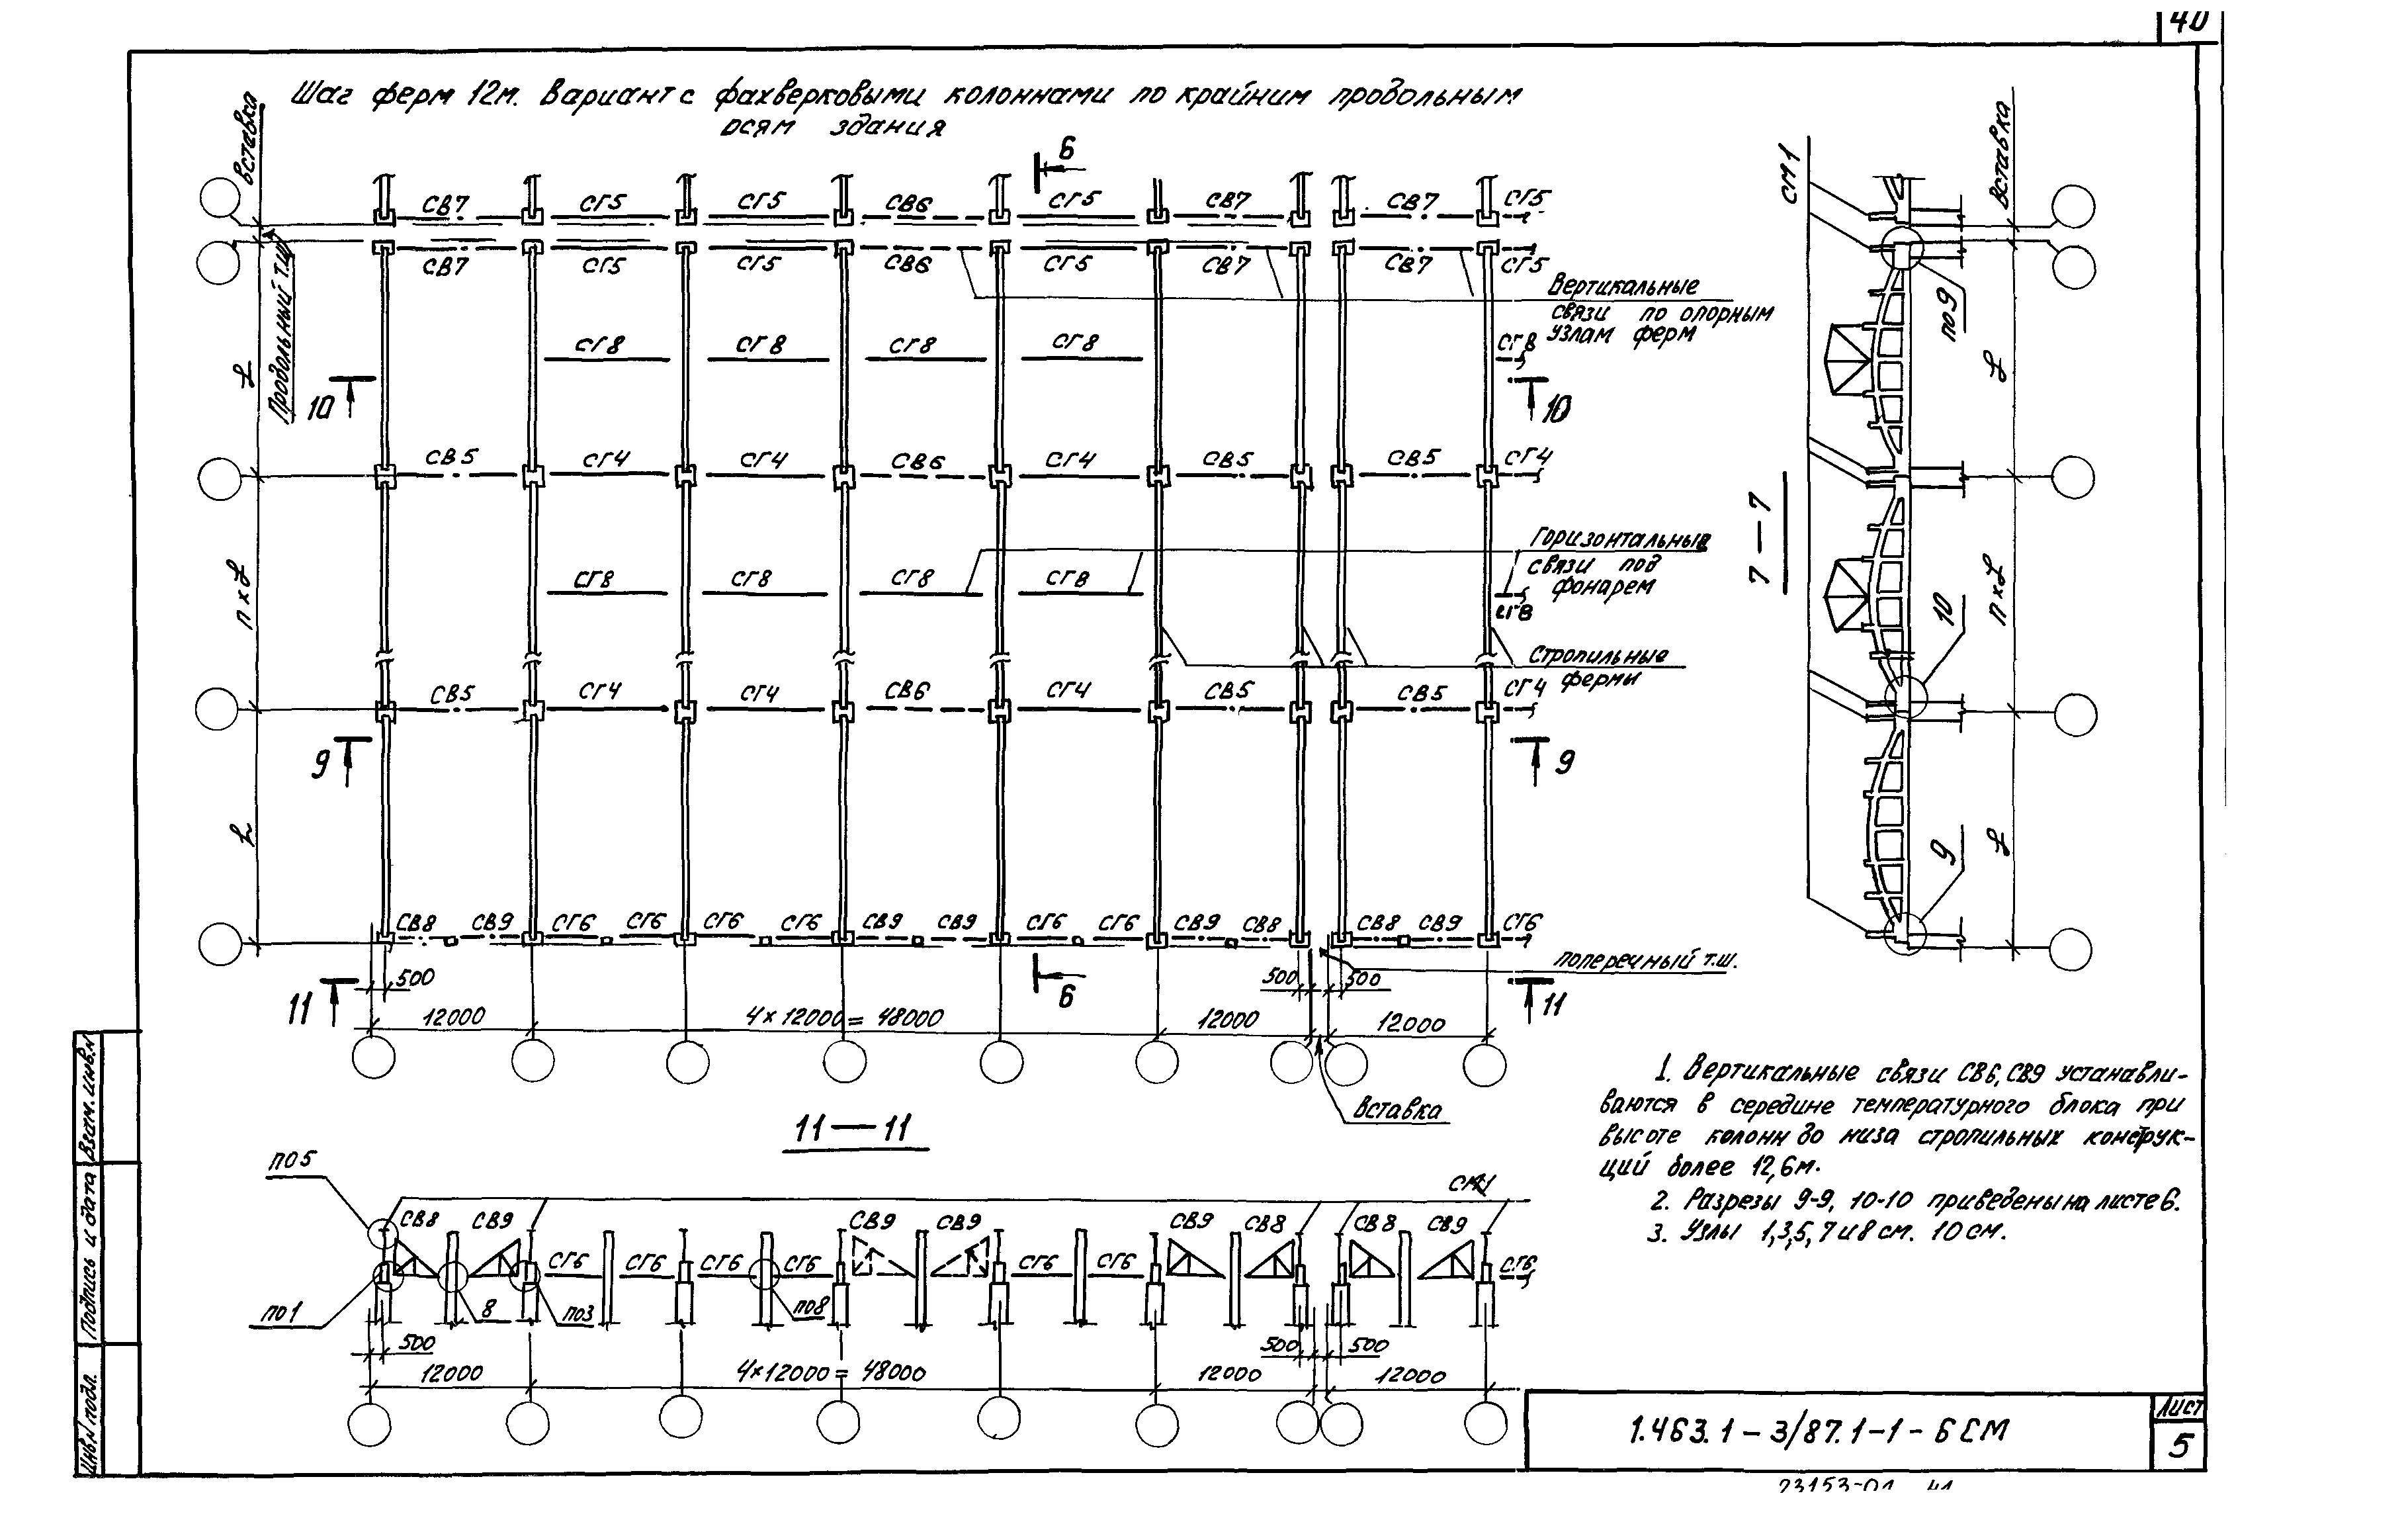 40
Шаг ферм 12м. Вариант с фахверковыми колоннами по крайним продольным
осям здания
Вставка
6
СМ1
Вставка
СВ7 СГ5 СГ5 СВ6 СГ5 СВ7 СВ7 СГ5
СВ7 СГ5 СГ5 СВ6 СГ5 СВ7 СВ7 СГ5
Продольный т.ш.
Вертикальные
связи по опорным
узлам ферм
по9
СГ8 СГ8 СГ8 СГ8 СГ8
L
L
10
10
СВ5 СГ4 СГ4 СВ6 СГ4 СВ5 СВ5 СГ4
7—7
Горизонтальные
связи под
фонарем
СГ8 СГ8 СГ8 СГ8 СГ8
n×L
n×L
10
Стропильные
фермы
СВ5 СГ4 СГ4 СВ6 СГ4 СВ5 СВ5 СГ4
9
9
L
L
9
СВ8 СВ9 СГ6 СГ6 СГ6 СГ6 СВ9 СВ9 СГ6 СГ6 СВ9 СВ8 СВ8 СВ9 СГ6
поперечный т.ш.
11 500 6 500 500 11
12000 4×12000=48000 12000 12000
Вставка
11—11
1. Вертикальные связи СВ6, СВ9 устанавли-
ваются в середине температурного блока при
высоте колонн до низа стропильных конструк-
ций более 12,6м.
2. Разрезы 9-9, 10-10 приведены на листе 6.
3. Узлы 1,3,5,7 и 8 см. 10 см.
по5
СМ1
СВ8 СВ9 СВ9 СВ9 СВ9 СВ8 СВ8 СВ9
СГ6 СГ6 СГ6 СГ6 СГ6 СГ6 СГ6
по1 8 по3 по8
500 500 500
12000 4×12000=48000 12000 12000
Взам. инв.N
Подпись и дата
Инв.N подл.
1.463.1-3/87.1-1-6СМ
Лист
5
23153-01 41